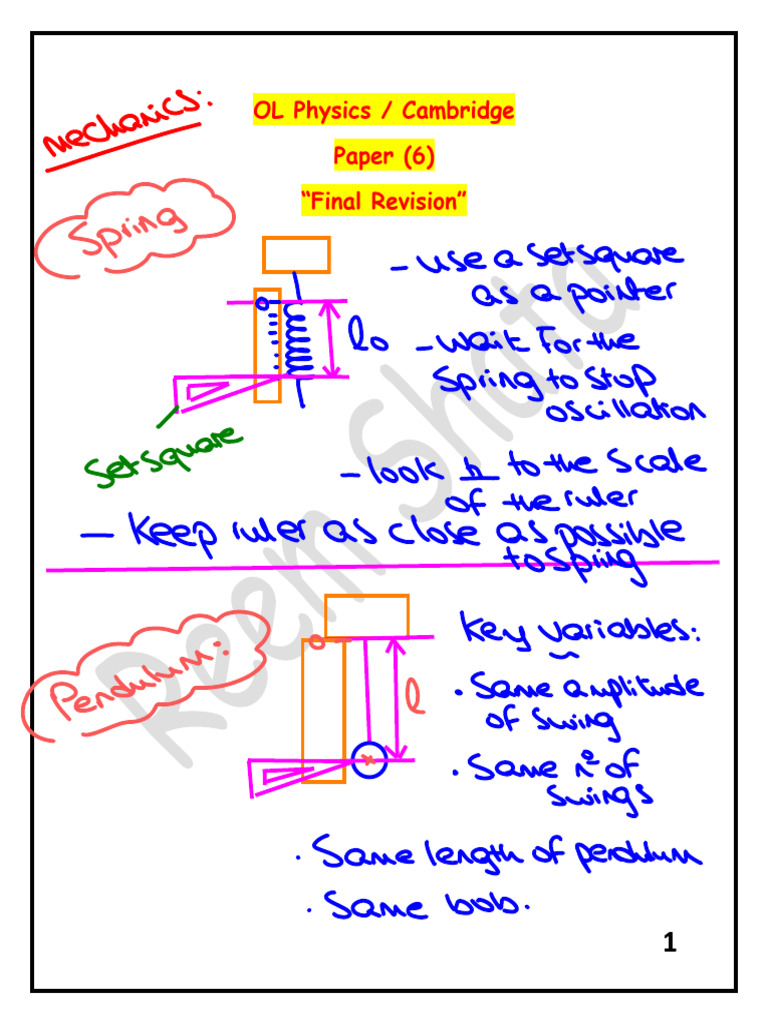 Mechanics:
OL Physics / Cambridge
Paper (6)
“Final Revision”
Spring
- use a set square
as a pointer
lo
- wait for the
spring to stop
oscillation
Set square
- look h to the scale
of the ruler
- Keep ruler as close as possible
to spring
Reem Shata
Pendulum:
l
Key variables:
. Same amplitude
of swing
. Same nº of
swings
. Same length of pendulum
. Same bob.
1